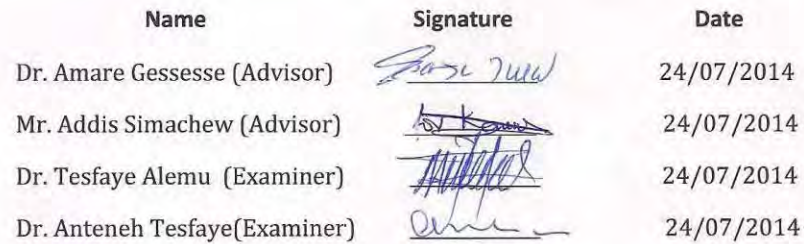 Name Signature Date
Dr. Amare Gessesse (Advisor) 24/07/2014
Mr. Addis Simachew (Advisor) 24/07/2014
Dr. Tesfaye Alemu (Examiner) 24/07/2014
Dr. Anteneh Tesfaye(Examiner) 24/07/2014